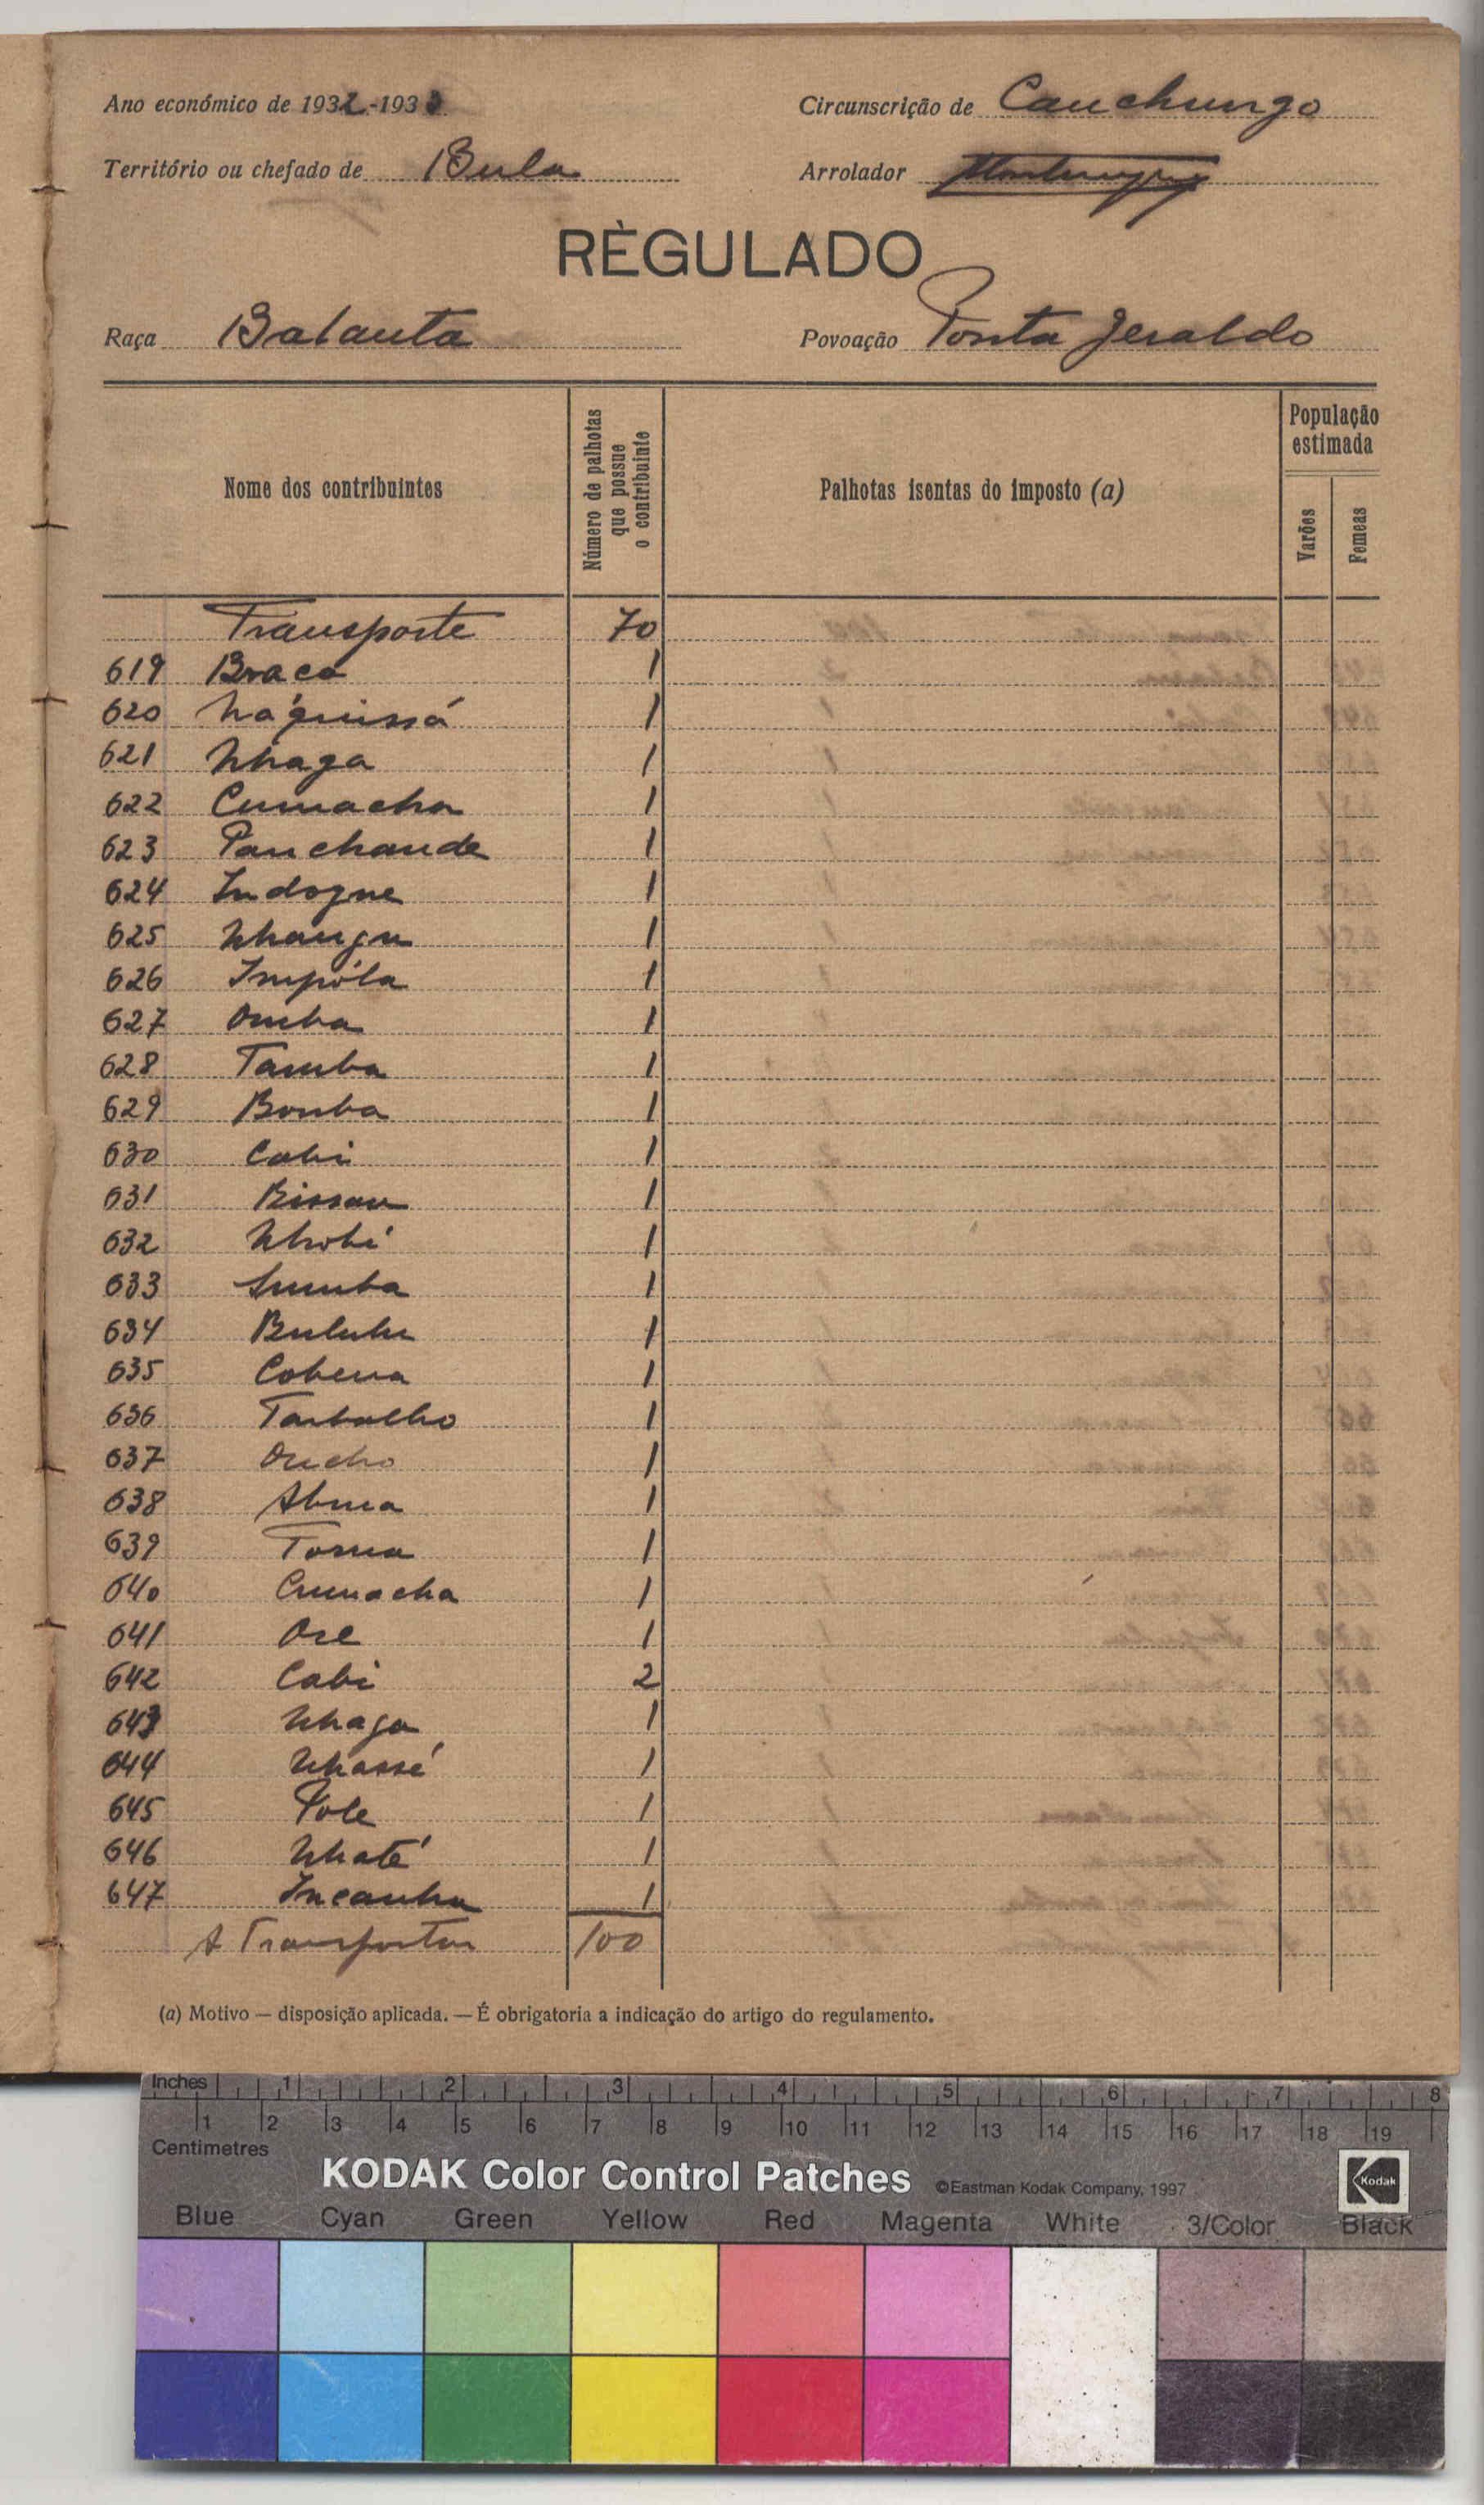 Ano económico de 1932-1933
Circunscrição de Canchungo
Território ou chefado de Bula
Arrolador
RÈGULADO
Raça Balanta
Povoação Ponta Geraldo
Nome dos contribuintes
Número de palhotas que possue o contribuinte
Palhotas isentas do imposto (a)
População estimada
Varões
Femeas
Transporte 70
619 Braco 1
620 Na'guissá 1
621 Nhaga 1
622 Cumacha 1
623 Panchande 1
624 Indogne 1
625 Nhangu 1
626 Impóla 1
627 Omba 1
628 Tamba 1
629 Bomba 1
630 Cabi 1
631 Bissau 1
632 Nhobi 1
633 Sumba 1
634 Bululu 1
635 Cobena 1
636 Tarbalho 1
637 Oucho 1
638 1
639 Torna 1
640 Cumacha 1
641 Ore 1
642 Cabi 2
643 Nhaga 1
644 Nhassé 1
645 Pole 1
646 Nhaté 1
647 Incanha 1
A Transportar 100
(a) Motivo — disposição aplicada. — É obrigatoria a indicação do artigo do regulamento.
Inches 1 2 3 4 5 6 7 8
1 2 3 4 5 6 7 8 9 10 11 12 13 14 15 16 17 18 19
Centimetres
KODAK Color Control Patches ©Eastman Kodak Company, 1997 Kodak
Blue Cyan Green Yellow Red Magenta White 3/Color Black